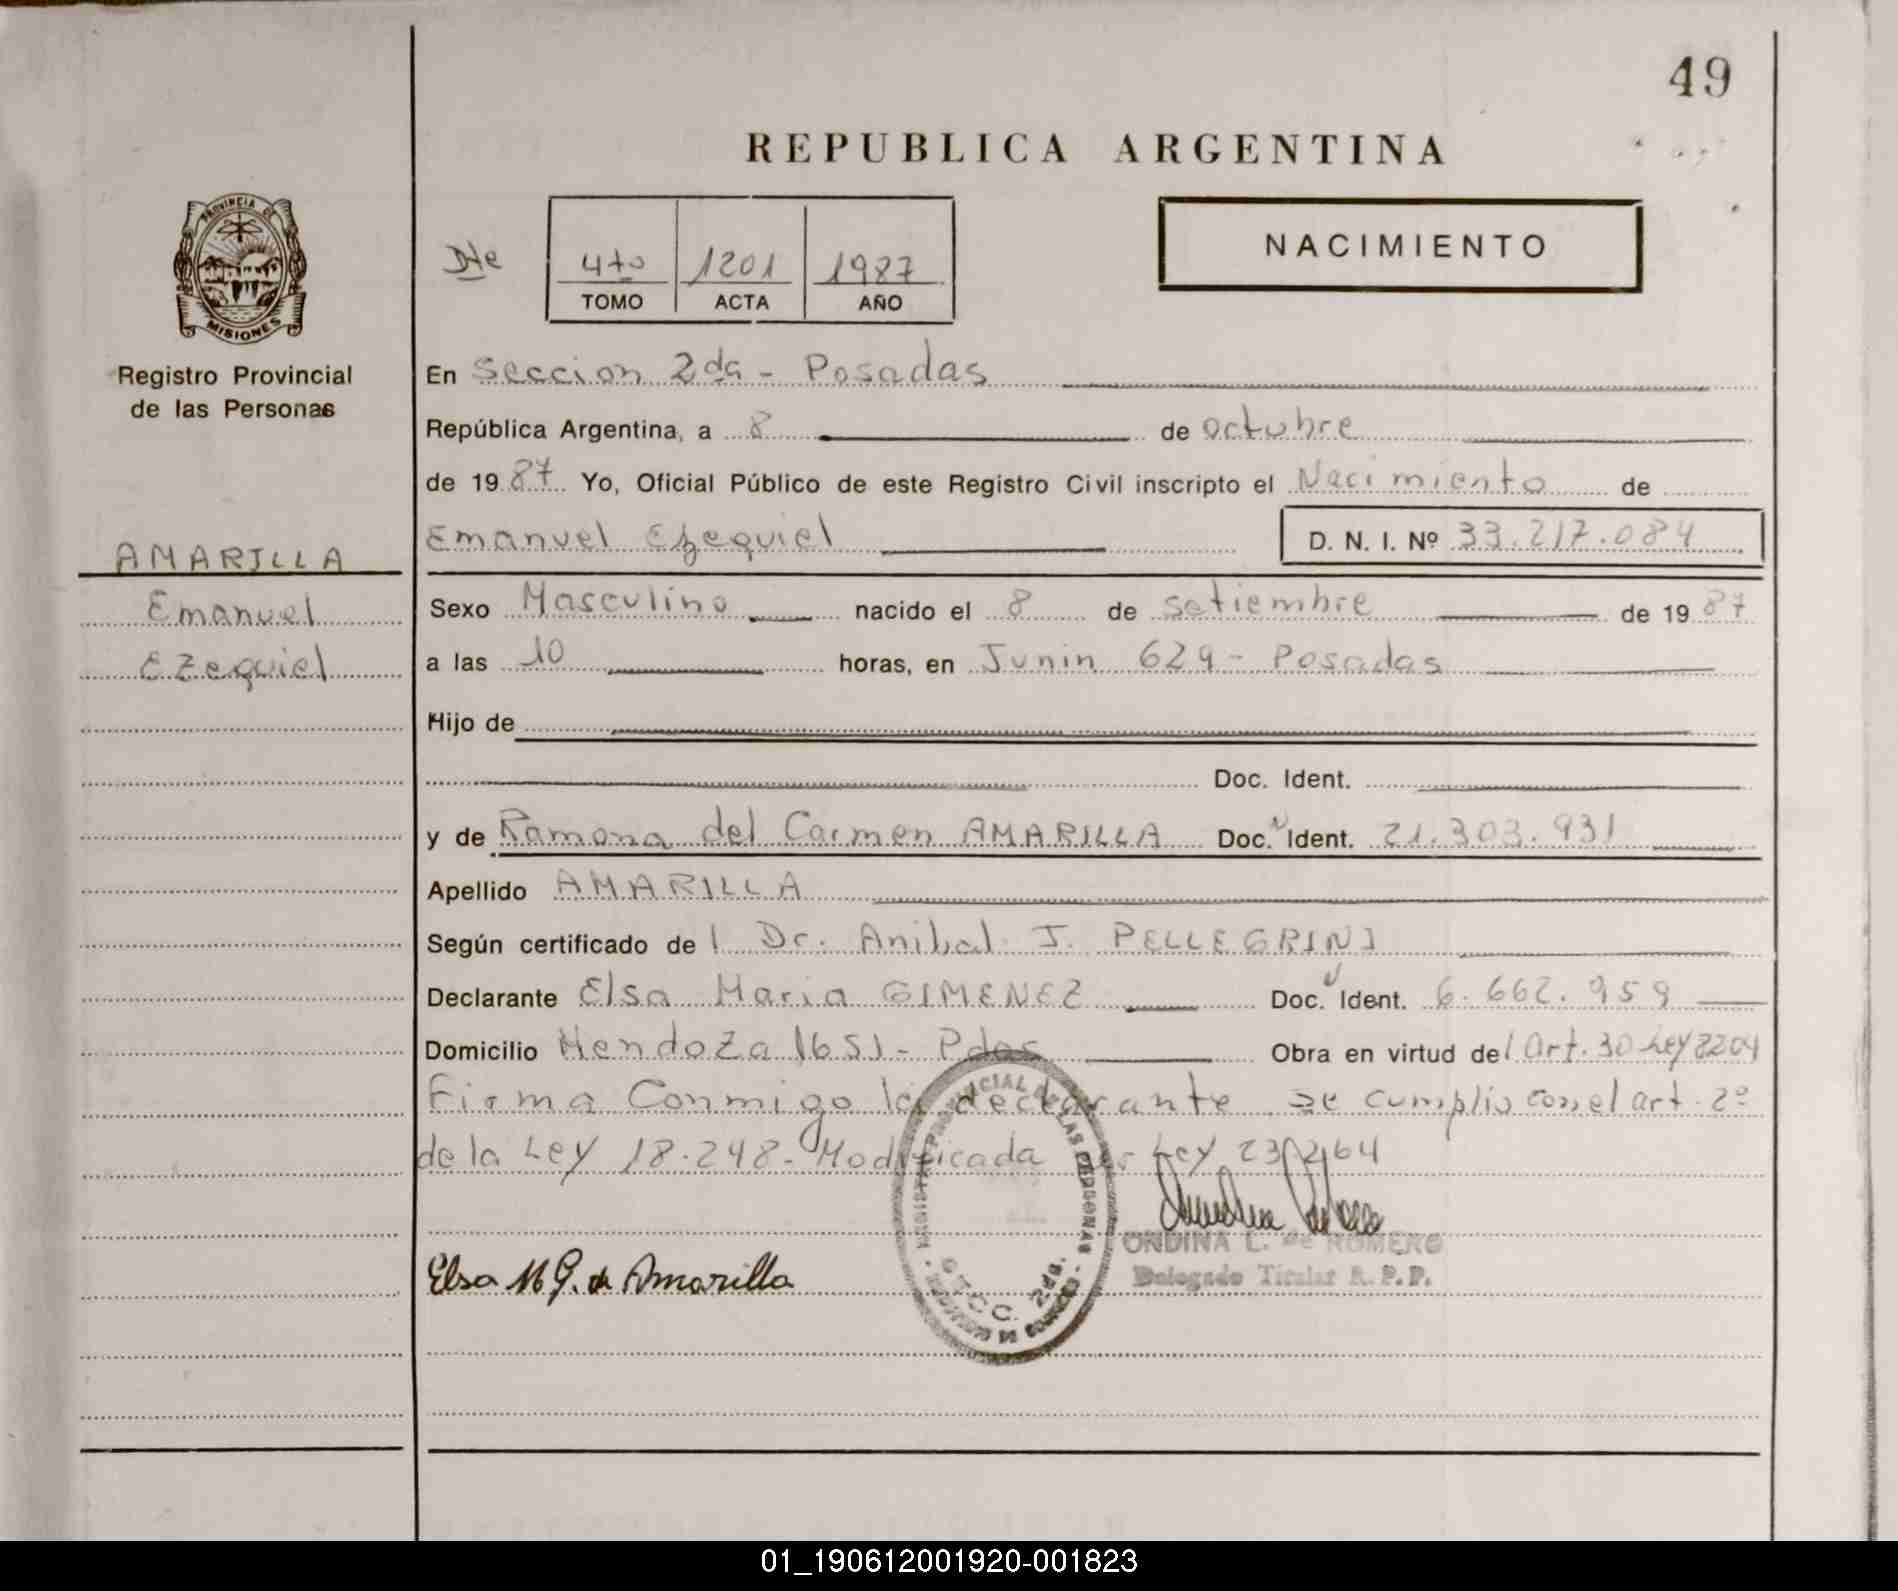 49
REPUBLICA ARGENTINA
PROVINCIA DE
MISIONES
Registro Provincial
de las Personas
Dte
4to 1201 1987
TOMO ACTA AÑO
NACIMIENTO
En Seccion 2da - Posadas
República Argentina, a 8 de octubre
de 1987 Yo, Oficial Público de este Registro Civil inscripto el Nacimiento de
Emanuel Ezequiel D. N. I. Nº 33.217.084
AMARILLA
Emanuel
Ezequiel
Sexo Masculino nacido el 8 de setiembre de 1987
a las 10 horas, en Junin 629 - Posadas
Hijo de
Doc. Ident.
y de Ramona del Carmen AMARILLA Doc. Ident. 21.303.931
Apellido AMARILLA
Según certificado del Dr. Anibal J. PELLEGRINI
Declarante Elsa Maria GIMENEZ Doc. Ident. 6.662.959
Domicilio Mendoza 1651 - Pdas Obra en virtud del Art. 30 Ley 8204
Firma Conmigo la declarante se cumplio con el art. 2º
de la Ley 18.248 - Modificada Ley 23.264
Elsa M G. de Amarilla
ONDINA L. de ROMERO
Delegado Titular R. P. P.
REGISTRO PROVINCIAL DE LAS PERSONAS
SECC. 2da.
01_190612001920-001823